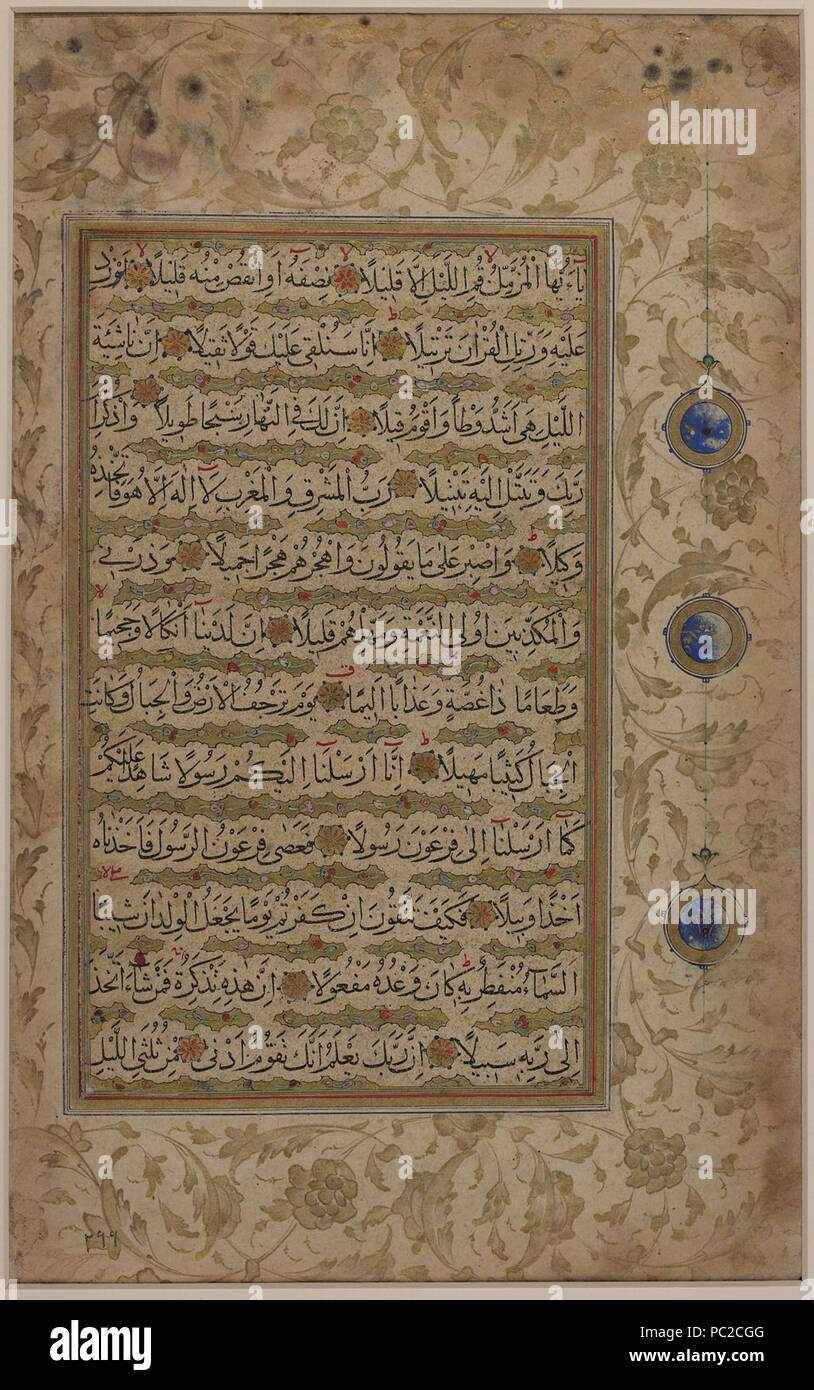 يَاأَيُّهَا الْمُزَّمِّلُ قُمِ اللَّيْلَ اِلَّا قَلِيلًا نِصْفَهُ اَوِ انْقُصْ مِنْهُ قَلِيلًا اَوْ زِدْ
عَلَيْهِ وَرَتِّلِ الْقُرْاٰنَ تَرْتِيلًا اِنَّا سَنُلْقِي عَلَيْكَ قَوْلًا ثَقِيلًا اِنَّ نَاشِئَةَ
اللَّيْلِ هِيَ اَشَدُّ وَطْأً وَاَقْوَمُ قِيلًا اِنَّ لَكَ فِي النَّهَارِ سَبْحًا طَوِيلًا وَاذْكُرِ اسْمَ
رَبِّكَ وَتَبَتَّلْ اِلَيْهِ تَبْتِيلًا رَبُّ الْمَشْرِقِ وَالْمَغْرِبِ لَا اِلٰهَ اِلَّا هُوَ فَاتَّخِذْهُ
وَكِيلًا وَاصْبِرْ عَلٰى مَا يَقُولُونَ وَاهْجُرْهُمْ هَجْرًا جَمِيلًا وَذَرْنِي
وَالْمُكَذِّبِينَ اُولِي النَّعْمَةِ وَمَهِّلْهُمْ قَلِيلًا اِنَّ لَدَيْنَا اَنْكَالًا وَجَحِيمًا
وَطَعَامًا ذَا غُصَّةٍ وَعَذَابًا اَلِيمًا يَوْمَ تَرْجُفُ الْاَرْضُ وَالْجِبَالُ وَكَانَتِ
الْجِبَالُ كَثِيبًا مَهِيلًا اِنَّا اَرْسَلْنَا اِلَيْكُمْ رَسُولًا شَاهِدًا عَلَيْكُمْ
كَمَا اَرْسَلْنَا اِلٰى فِرْعَوْنَ رَسُولًا فَعَصٰى فِرْعَوْنُ الرَّسُولَ فَاَخَذْنَاهُ
اَخْذًا وَبِيلًا فَكَيْفَ تَتَّقُونَ اِنْ كَفَرْتُمْ يَوْمًا يَجْعَلُ الْوِلْدَانَ شِيبًا
اَلسَّمَاءُ مُنْفَطِرٌ بِهِ كَانَ وَعْدُهُ مَفْعُولًا اِنَّ هٰذِهِ تَذْكِرَةٌ فَمَنْ شَاءَ اتَّخَذَ
اِلٰى رَبِّهِ سَبِيلًا اِنَّ رَبَّكَ يَعْلَمُ اَنَّكَ تَقُومُ اَدْنٰى مِنْ ثُلُثَيِ اللَّيْلِ
٢٩٩
alamy
alamy
alamy
Image ID: PC2CGG
www.alamy.com